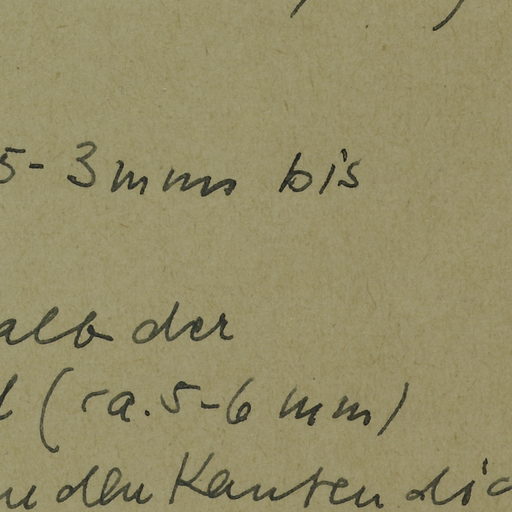 5-3mm bis
alb der
(ca. 5-6 mm)
den Kanten